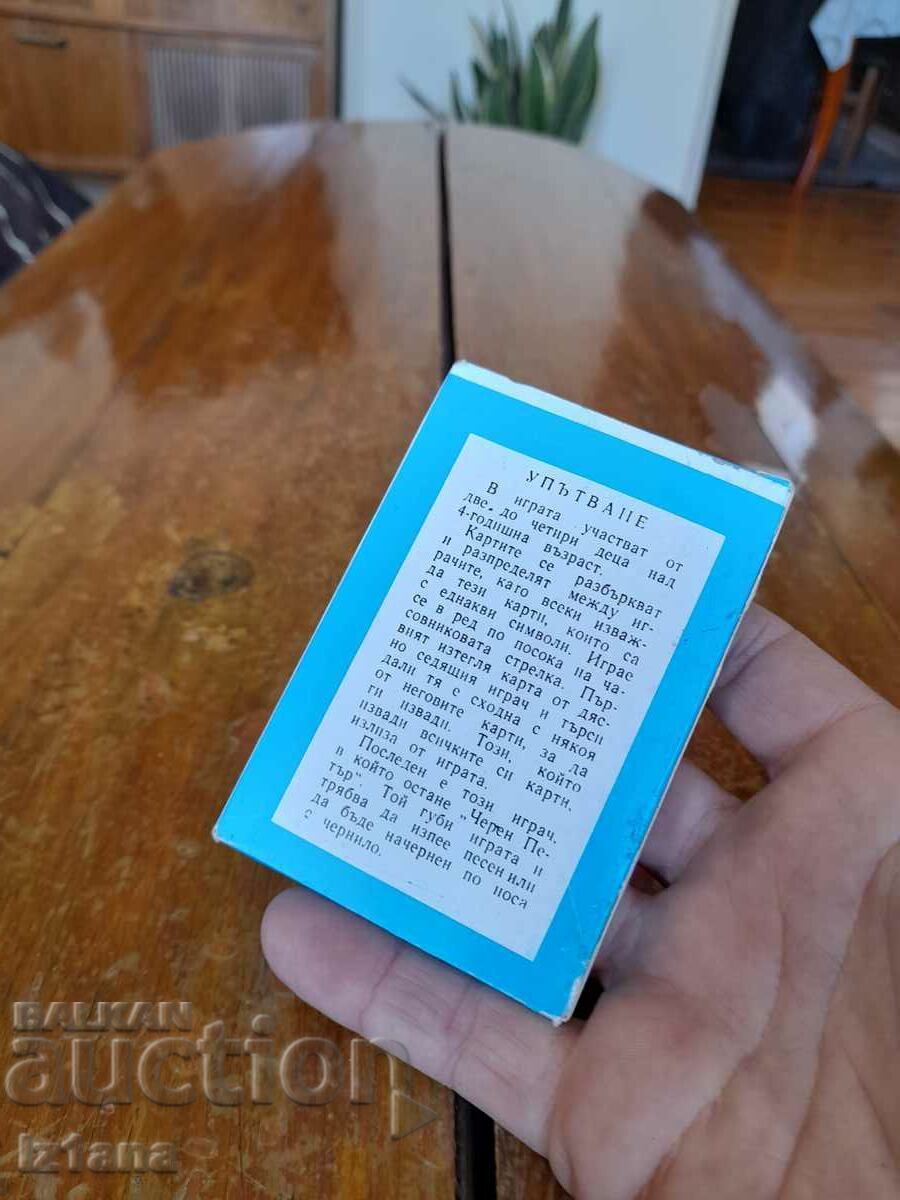 УПЪТВАНЕ
В играта участват от
две до четири деца над
4-годишна възраст.
Картите се разбъркват
и разпределят между иг-
рачите, като всеки изваж-
да тези карти, които са
с еднакви символи. Играе
се в ред по посока на ча-
совниковата стрелка. Пър-
вият изтегля карта от дяс-
но седящия играч и търси
дали тя е сходна с някоя
от неговите карти, за да
ги извади. Този, който
извади всичките си карти,
излиза от играта.
Последен е този играч,
в който остане "Черен Пе-
тър". Той губи играта и
трябва да изпее песен или
да бъде начернен по носа
с чернило.
BALKAN
auction
iz1ana